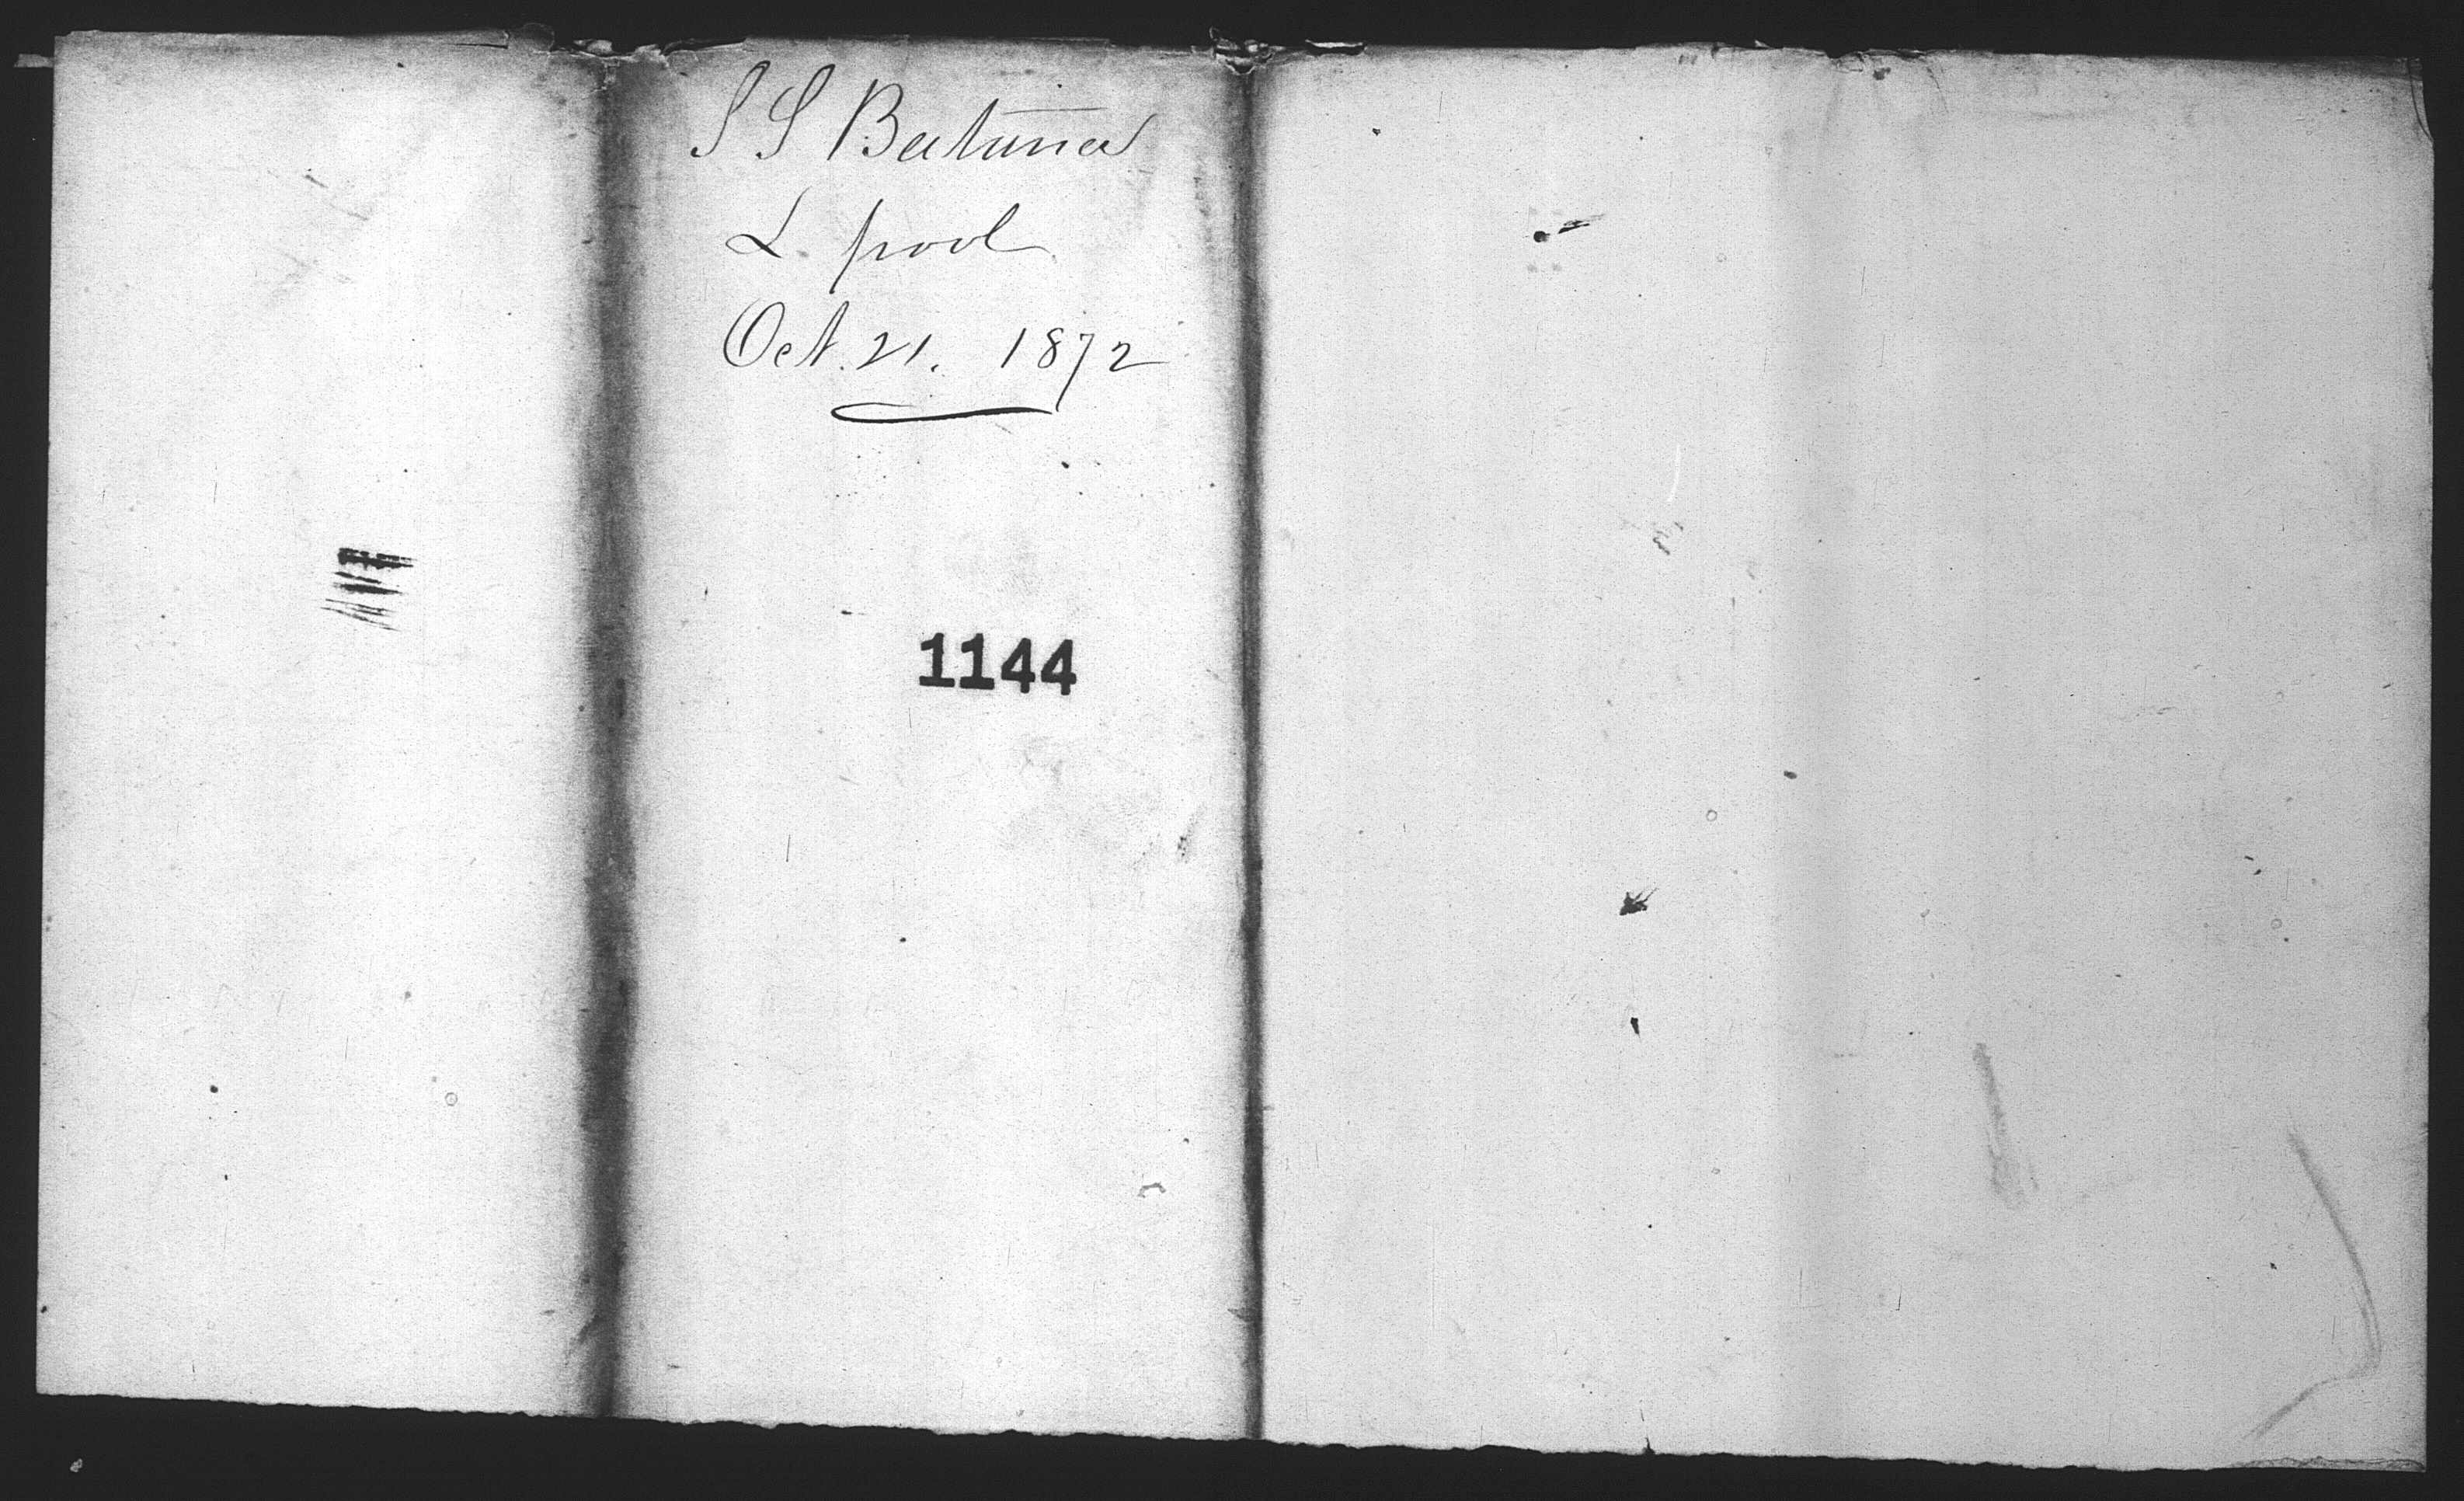 S S Batavia
L. pool
Oct. 21. 1872
1144